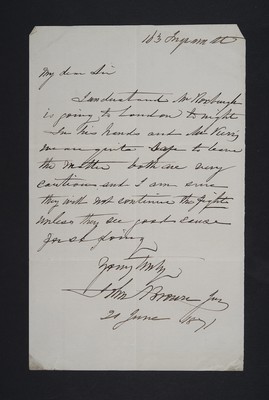 163 Ingram St
My dear Sir
I understand Mr Roxburgh
is going to London to night
In his hands and Mr King
we are quite safe to leave
the matter both are very
cautious and I am sure
they will not continue the fight
unless they see good cause
for so doing
Yours truly
John Brown Jnr
20 June 1871